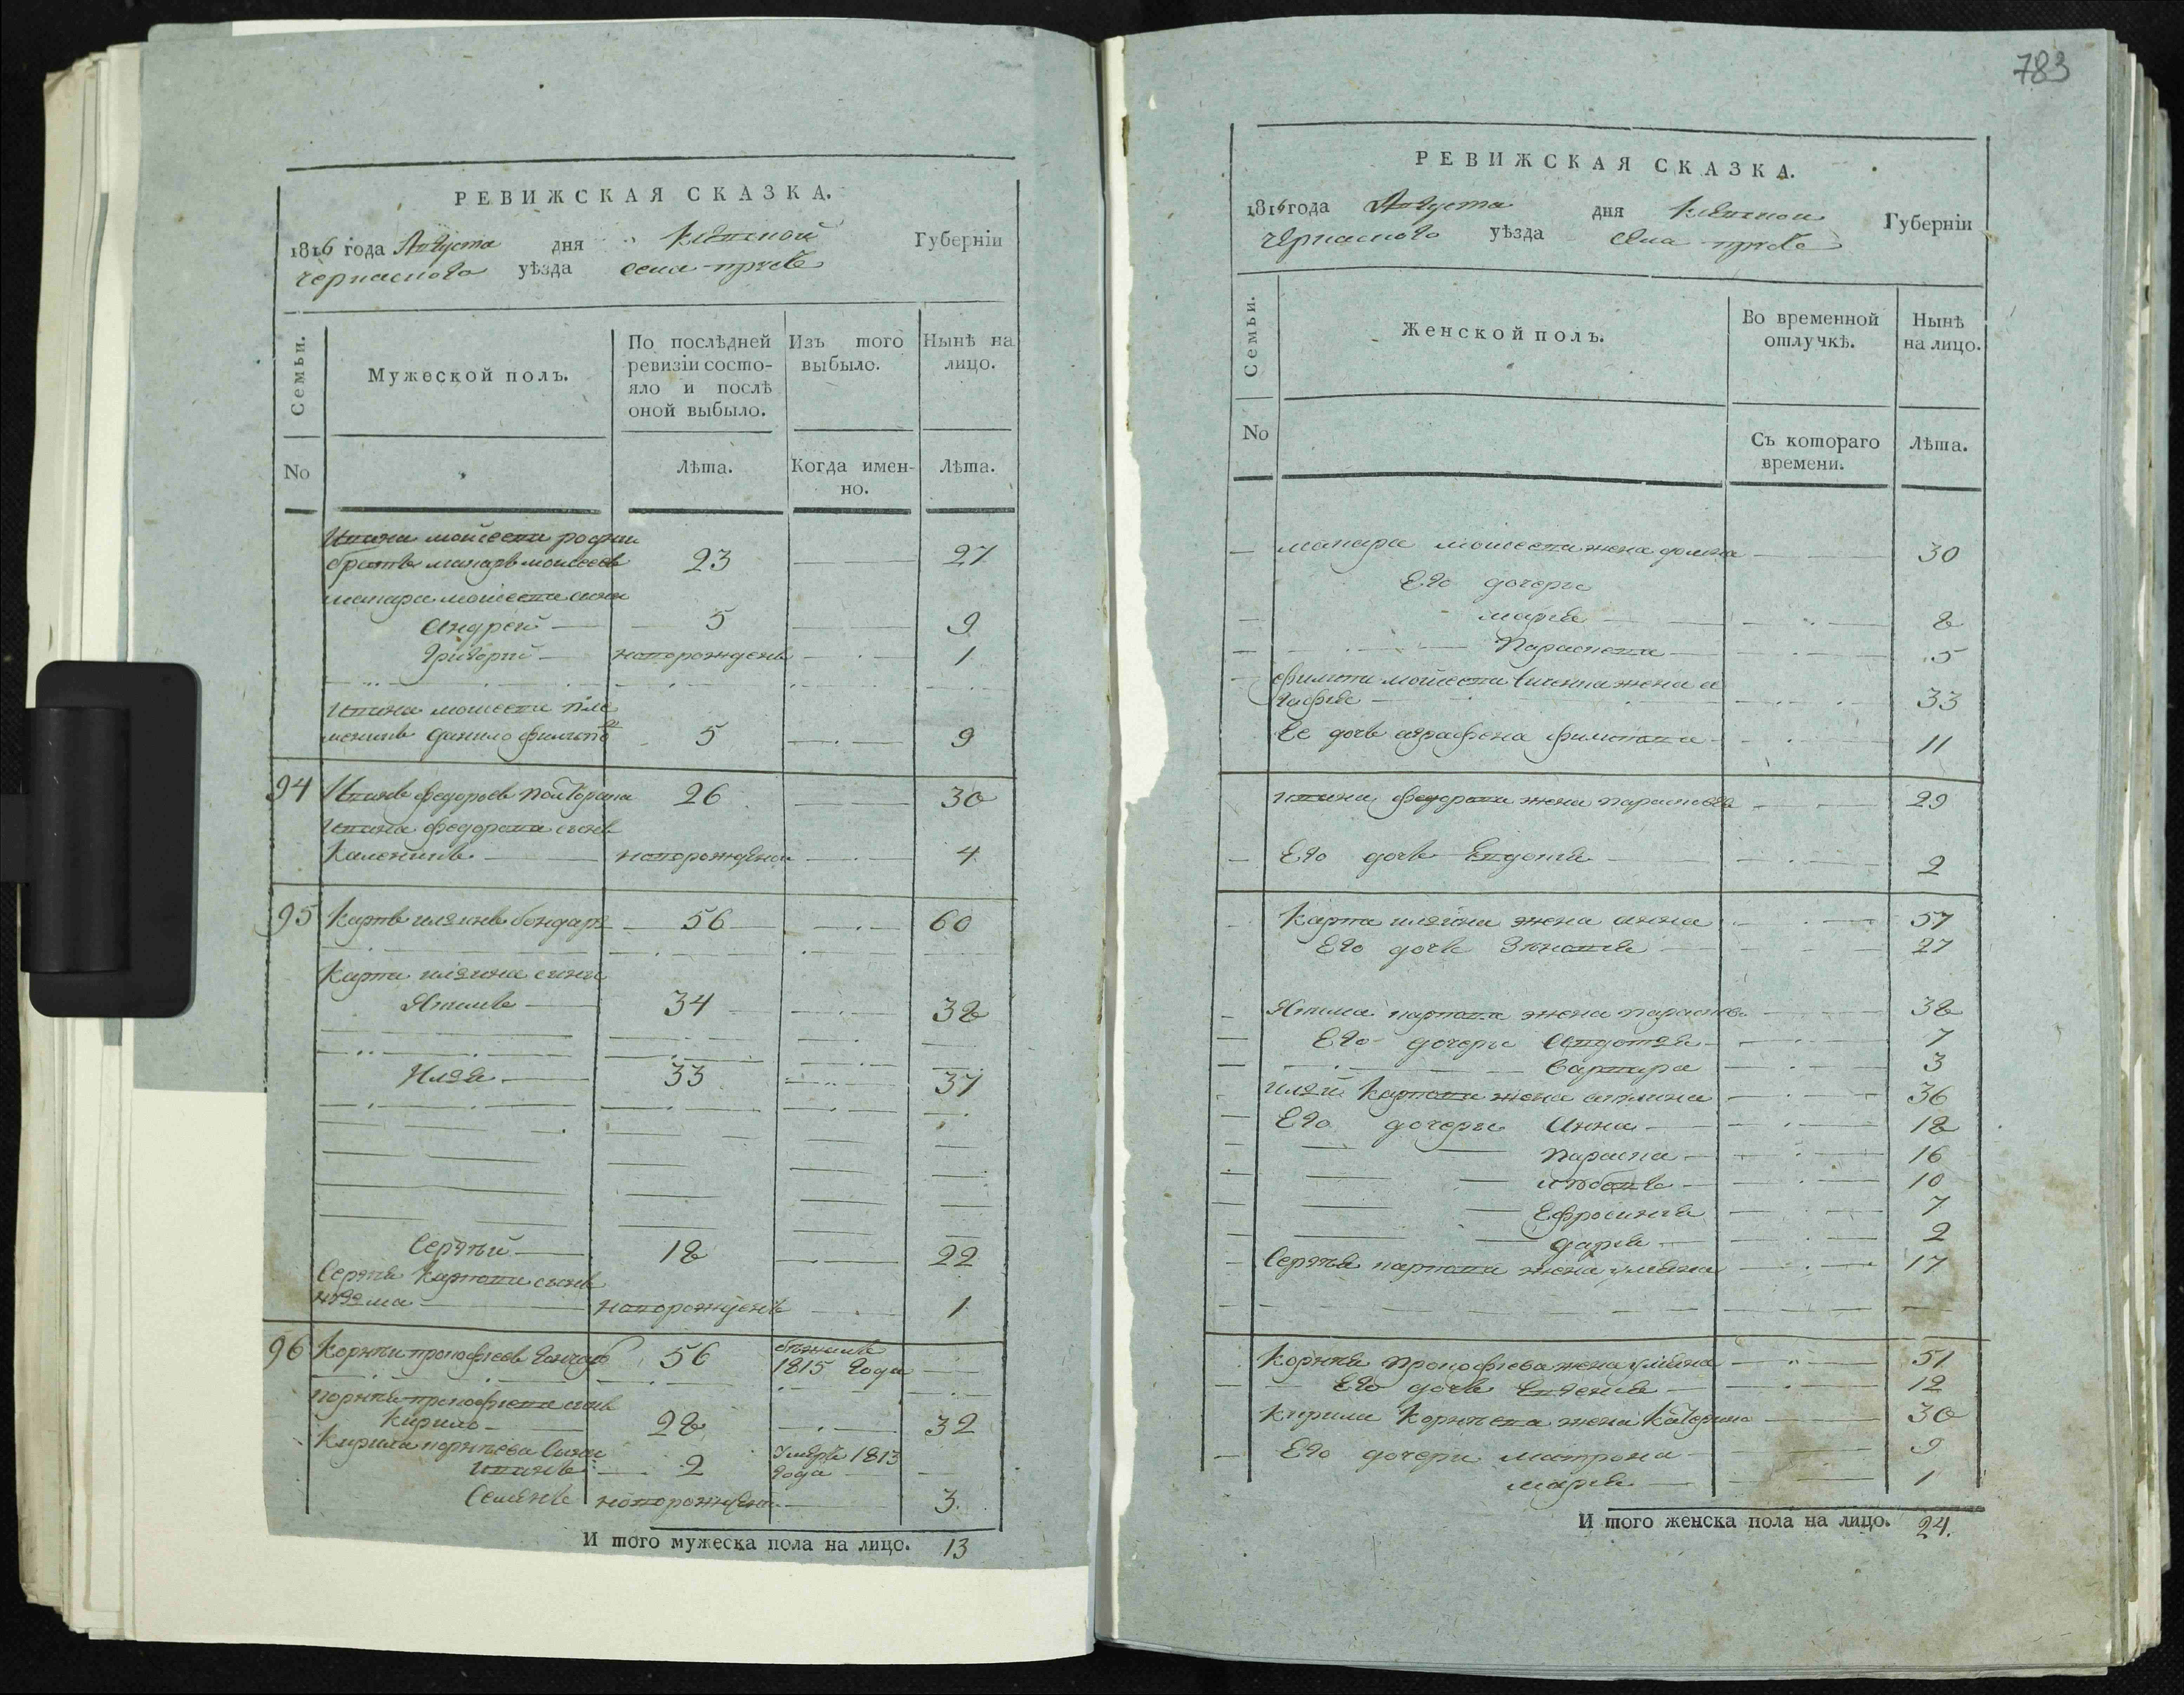 РЕВИЖСКАЯ СКАЗКА.
1816 года Августа дня Киевской Губернiи
черкаского уѣзда села прусъ
Семьи.
Мужеской полъ.
По послѣдней ревизiи состо-
яло и послѣ
оной выбыло.
Изъ того
выбыло.
Нынѣ на
лицо.
No
Лѣта.
Когда имен-
но.
Лѣта.
Ивана мойсеева родни
братъ макаръ моисеевъ 23 27
макара моисеева сини
Андрей 5 9
Григорий новорожденъ 1
Ивана моисеева пле
меникъ данило филипов 5 9
94 Иванъ федоровъ 26 30
Ивана федорова сынъ
Каленикъ новорожденъ 4
95 Карпъ илъинъ бондарь 56 60
Карпа илъина сини
Якимъ 34 38
Илъя 33 37
Сергѣй 18 22
Сергѣя Карпова сынъ
кузма новорожденъ 1
96 Корнѣй прокофиевъ Гончаръ 56 бѣжалъ
1815 года
корнѣя прокофиева синъ
Кирило 28 32
Кирила корнѣева Сыни
иванъ 2 Умеръ 1813
года
Семенъ новорожденъ 3
И того мужеска пола на лицо. 13
783
РЕВИЖСКАЯ СКАЗКА.
1816 года Августа дня Киевской Губернiи
черкаского уѣзда села прусъ
Семьи.
Женской полъ.
Во временной
отлучкѣ.
Нынѣ
на лицо.
No
Съ котораго
времени.
Лѣта.
макара моисеева жена домна 30
Его дочери
марья 8
Параскева 5
филипа мойсеева жена а
гафия 33
Ее дочь аграфена филипова 11
ивана федорова жена параскевия 29
Его дочь Евдокия 2
Карпа илъина жена анна 57
Его дочь Зѣновия 27
Якима карпова жена параскева 38
Его дочери Авдотъя 7
Варвара 3
илъи Карпова жена акилина 36
Его дочери Анна 18
Параска 16
любовъ 10
Ефросиния 7
дария 2
Сергѣя карпова жена улияна 17
Корнѣя Прокофиева жена улияна 51
Его дочь Евгения 12
Кирила Корнѣева жена Катерина 30
Его дочери матрона 9
мария 1
И того женска пола на лицо. 24.